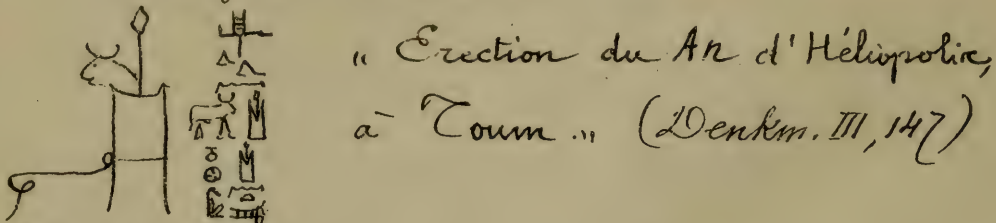 „ Erection du An d'Héliopolis,
à Toum „ (Denkm. III, 147)